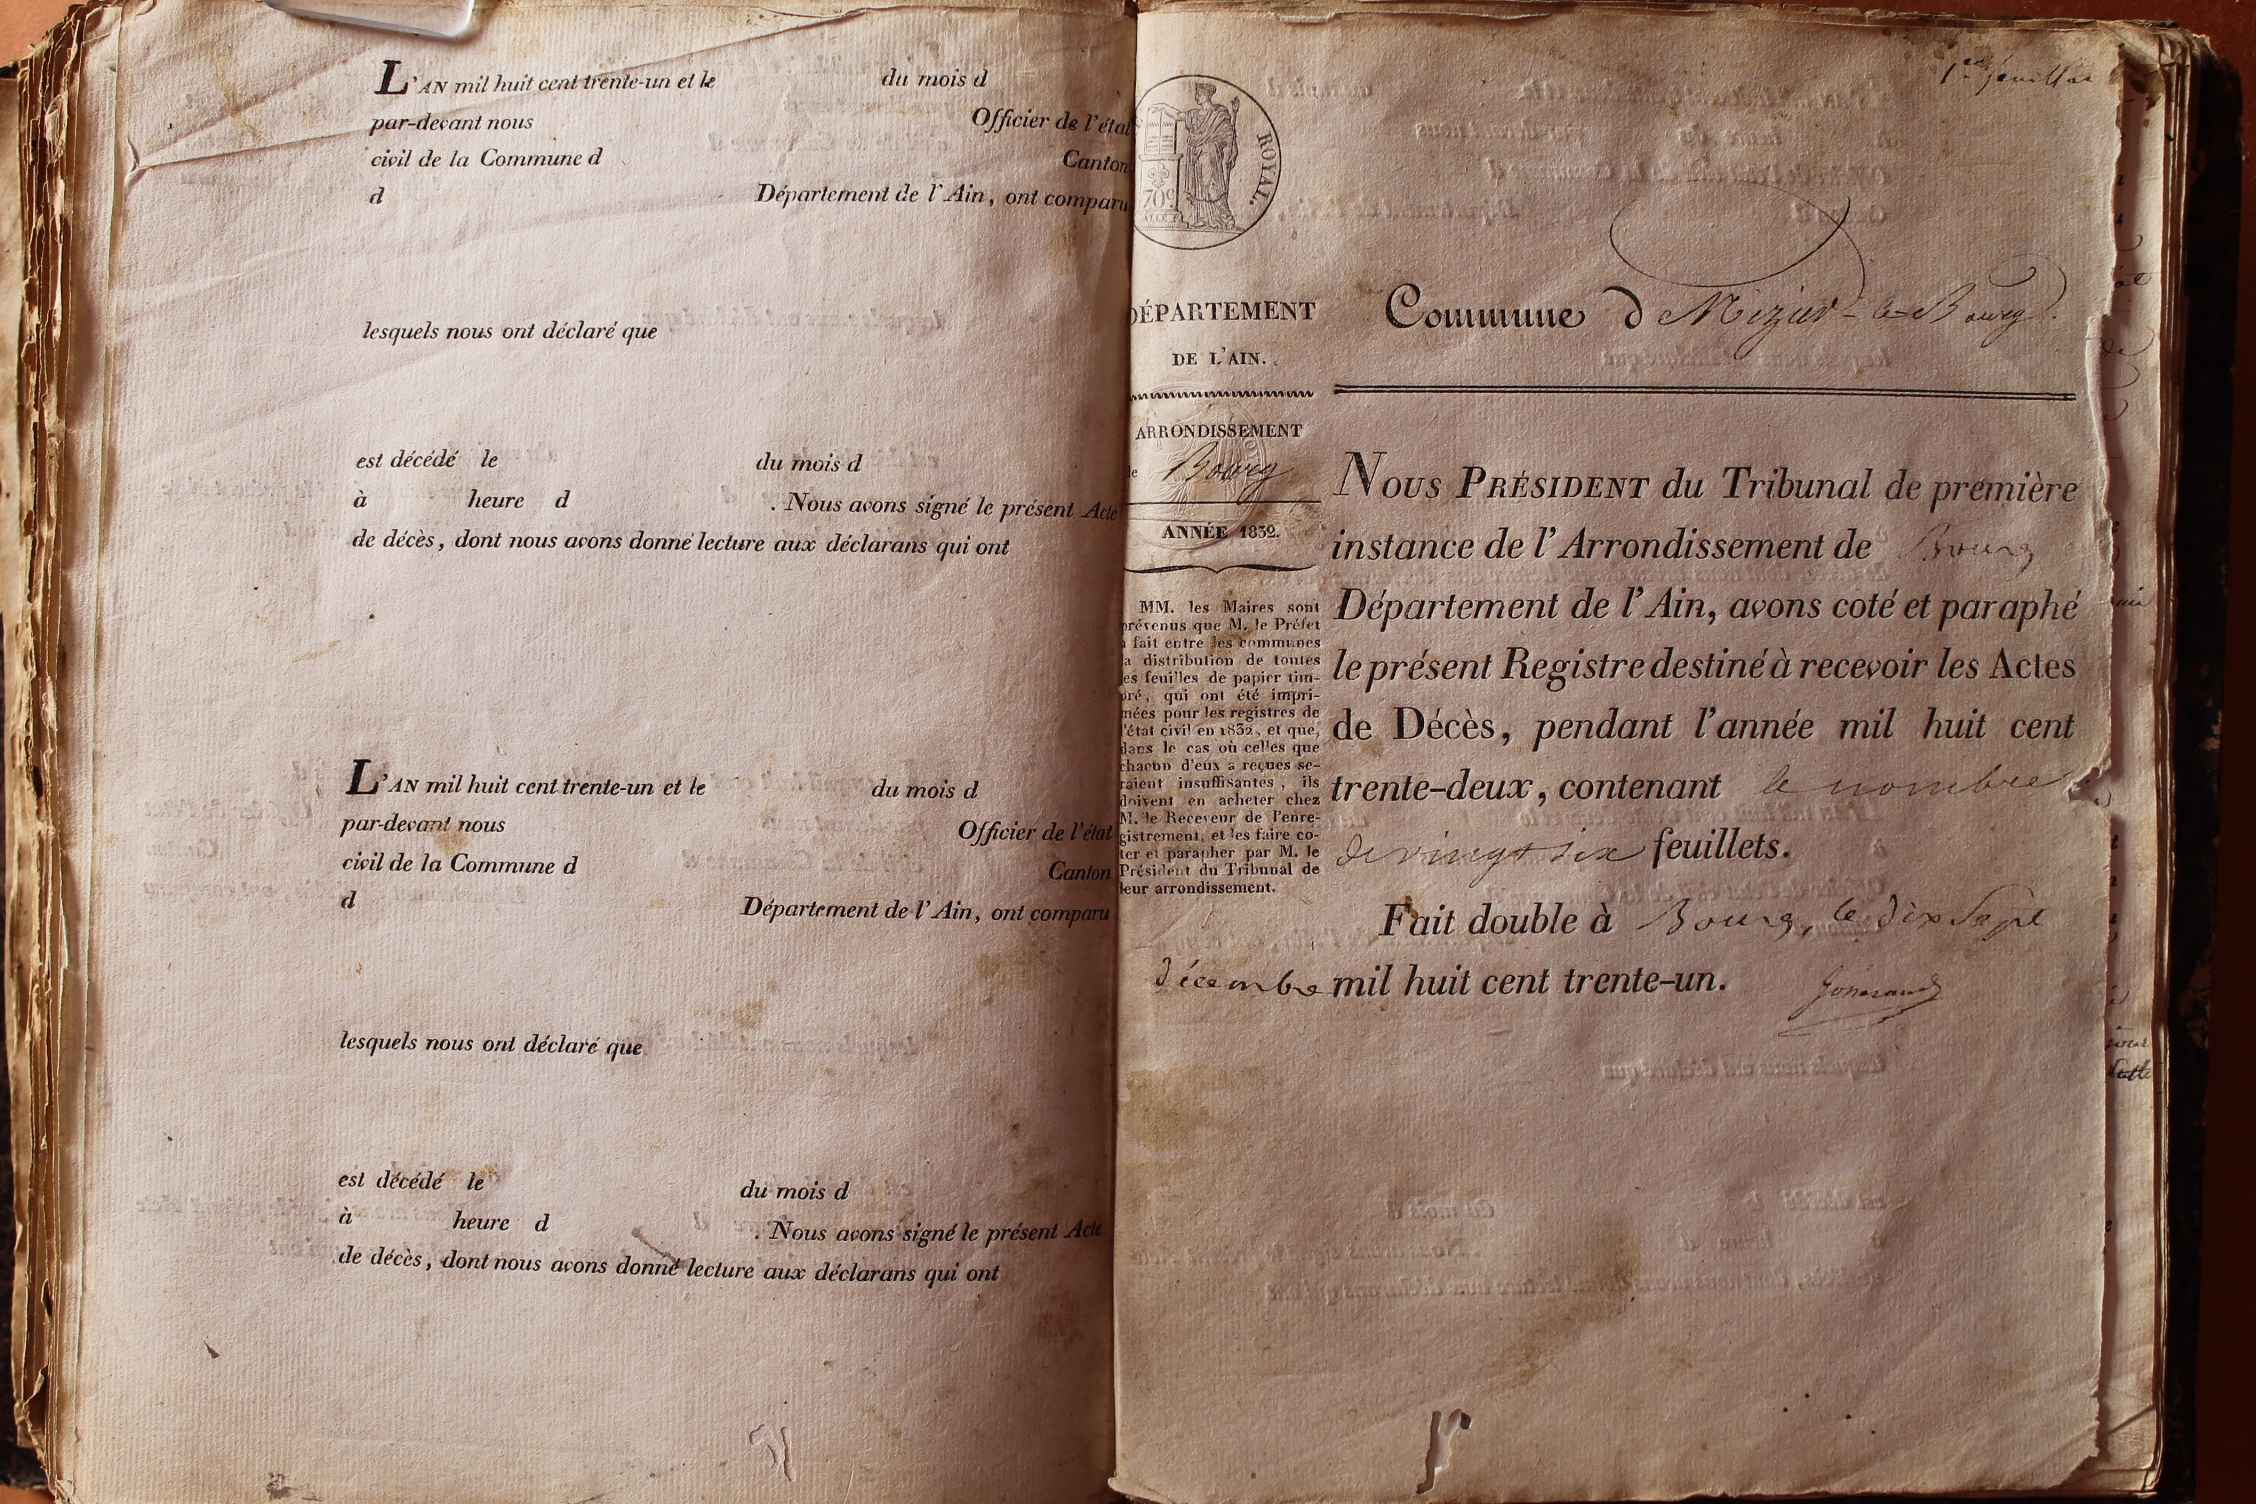 L'AN mil huit cent trente-un et le du mois d
par-devant nous Officier de l'état
civil de la Commune d Canton
d Département de l'Ain, ont comparu
lesquels nous ont déclaré que
est décédé le du mois d
à heure d . Nous avons signé le présent Acte
de décès, dont nous avons donné lecture aux déclarans qui ont
L'AN mil huit cent trente-un et le du mois d
par-devant nous Officier de l'état
civil de la Commune d Canton
d Département de l'Ain, ont comparu
lesquels nous ont déclaré que
est décédé le du mois d
à heure d . Nous avons signé le présent Acte
de décès, dont nous avons donné lecture aux déclarans qui ont
ROYAL.
70c
DÉPARTEMENT
DE L'AIN.
ARRONDISSEMENT
de Bourg
ANNÉE 1832.
MM. les Maires sont
prévenus que M. le Préfet
a fait entre les communes
la distribution de toutes
les feuilles de papier tim-
bré, qui ont été impri-
mées pour les registres de
l'état civil en 1832, et que,
dans le cas où celles que
chacun d'eux a reçues se-
raient insuffisantes, ils
doivent en acheter chez
M. le Receveur de l'enre-
gistrement, et les faire co-
ter et parapher par M. le
Président du Tribunal de
leur arrondissement.
Commune d le Bourg
NOUS PRÉSIDENT du Tribunal de première
instance de l'Arrondissement de Bourg
Département de l'Ain, avons coté et paraphé
le présent Registre destiné à recevoir les Actes
de Décès, pendant l'année mil huit cent
trente-deux, contenant le nombre
de vingt six feuillets.
Fait double à Bourg, le dix Sept
décembre mil huit cent trente-un.